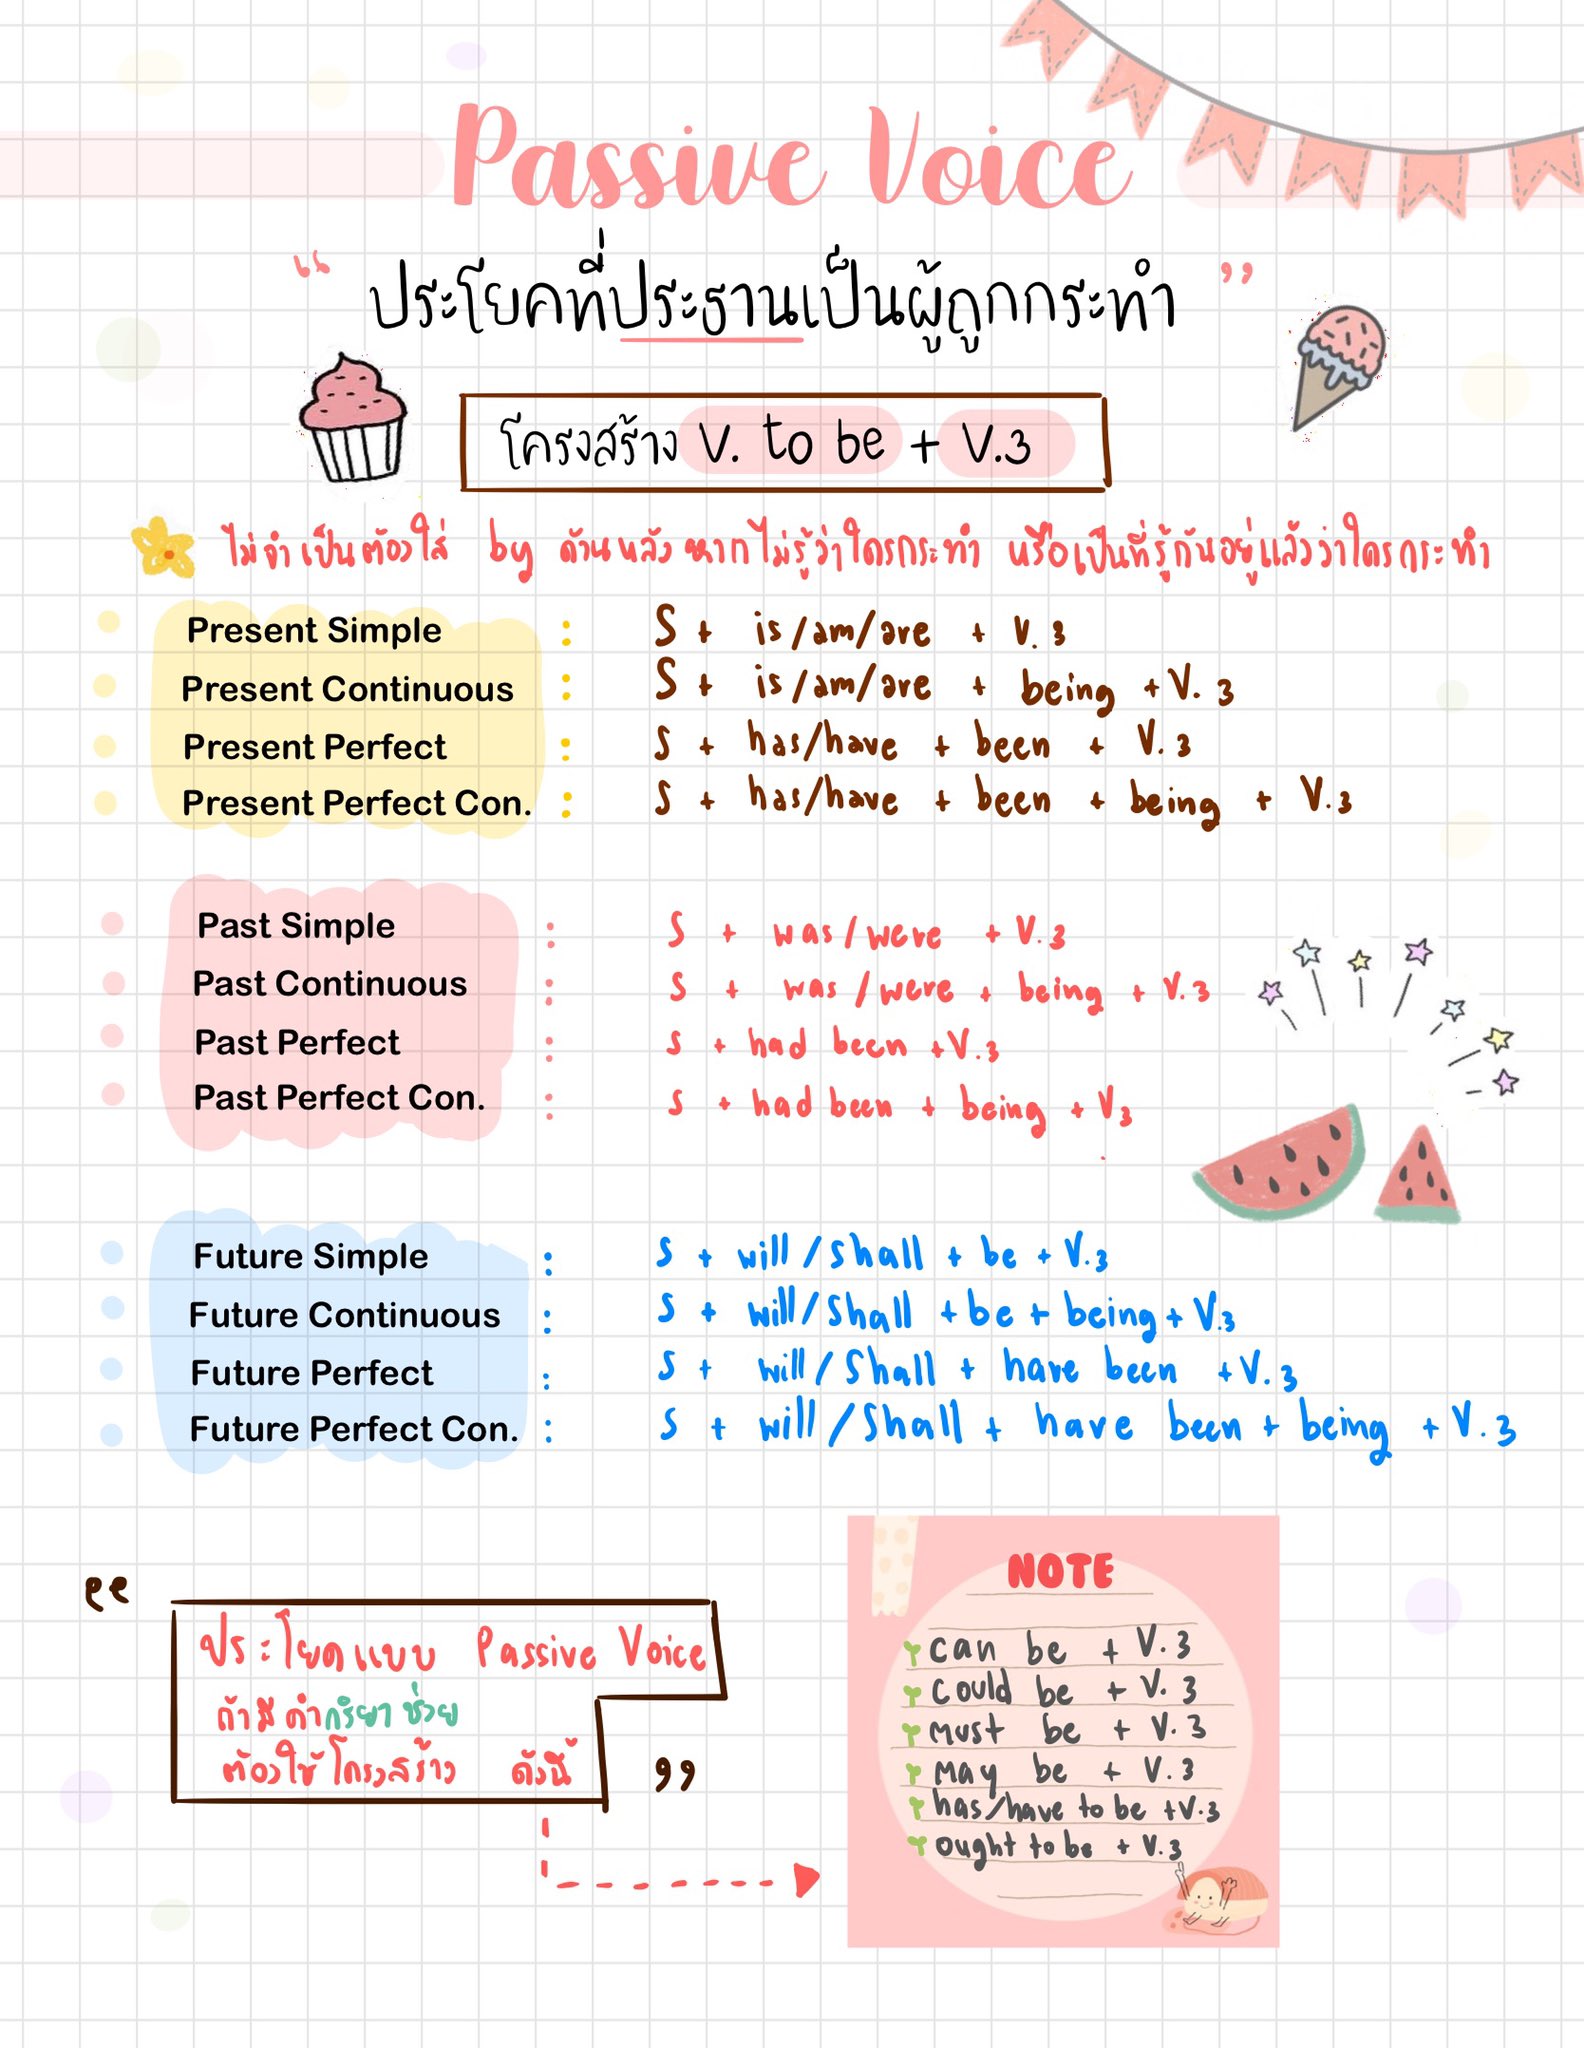 Passive Voice
“ ประโยคที่ประธานเป็นผู้ถูกกระทำ ”
โครงสร้าง V. to be + V.3
ไม่จำเป็นต้องใส่ by ด้านหลัง หากไม่รู้ว่าใครกระทำ หรือเป็นที่รู้กันอยู่แล้วว่าใครกระทำ
Present Simple : S + is/am/are + V.3
Present Continuous : S + is/am/are + being + V.3
Present Perfect : S + has/have + been + V.3
Present Perfect Con. : S + has/have + been + being + V.3
Past Simple : S + was/were + V.3
Past Continuous : S + was/were + being + V.3
Past Perfect : S + had been + V.3
Past Perfect Con. : S + had been + being + V3
Future Simple : S + will/shall + be + V.3
Future Continuous : S + will/shall + be + being + V.3
Future Perfect : S + will/shall + have been + V.3
Future Perfect Con. : S + will/shall + have been + being + V.3
“
ประโยคแบบ Passive Voice
ถ้ามีคำกริยาช่วย
ต้องใช้โครงสร้าง ดังนี้
”
NOTE
can be + V.3
could be + V.3
must be + V.3
may be + V.3
has/have to be + V.3
ought to be + V.3